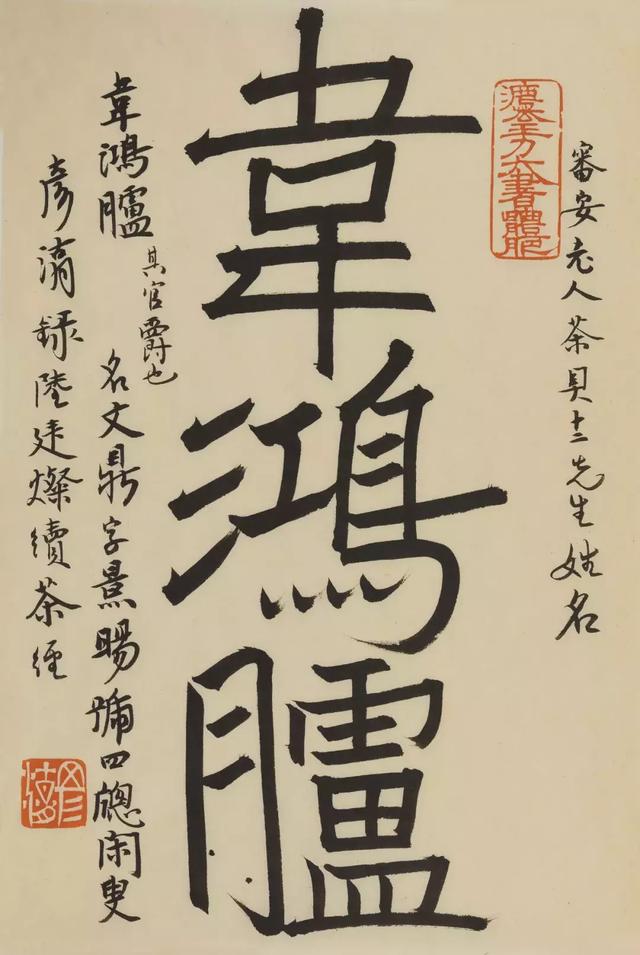 審安老人茶具十二先生姓名
韋鴻臚
韋鴻臚 其官爵也
名文鼎字景暘號四牕閑叟
彥錄陸廷燦續茶經